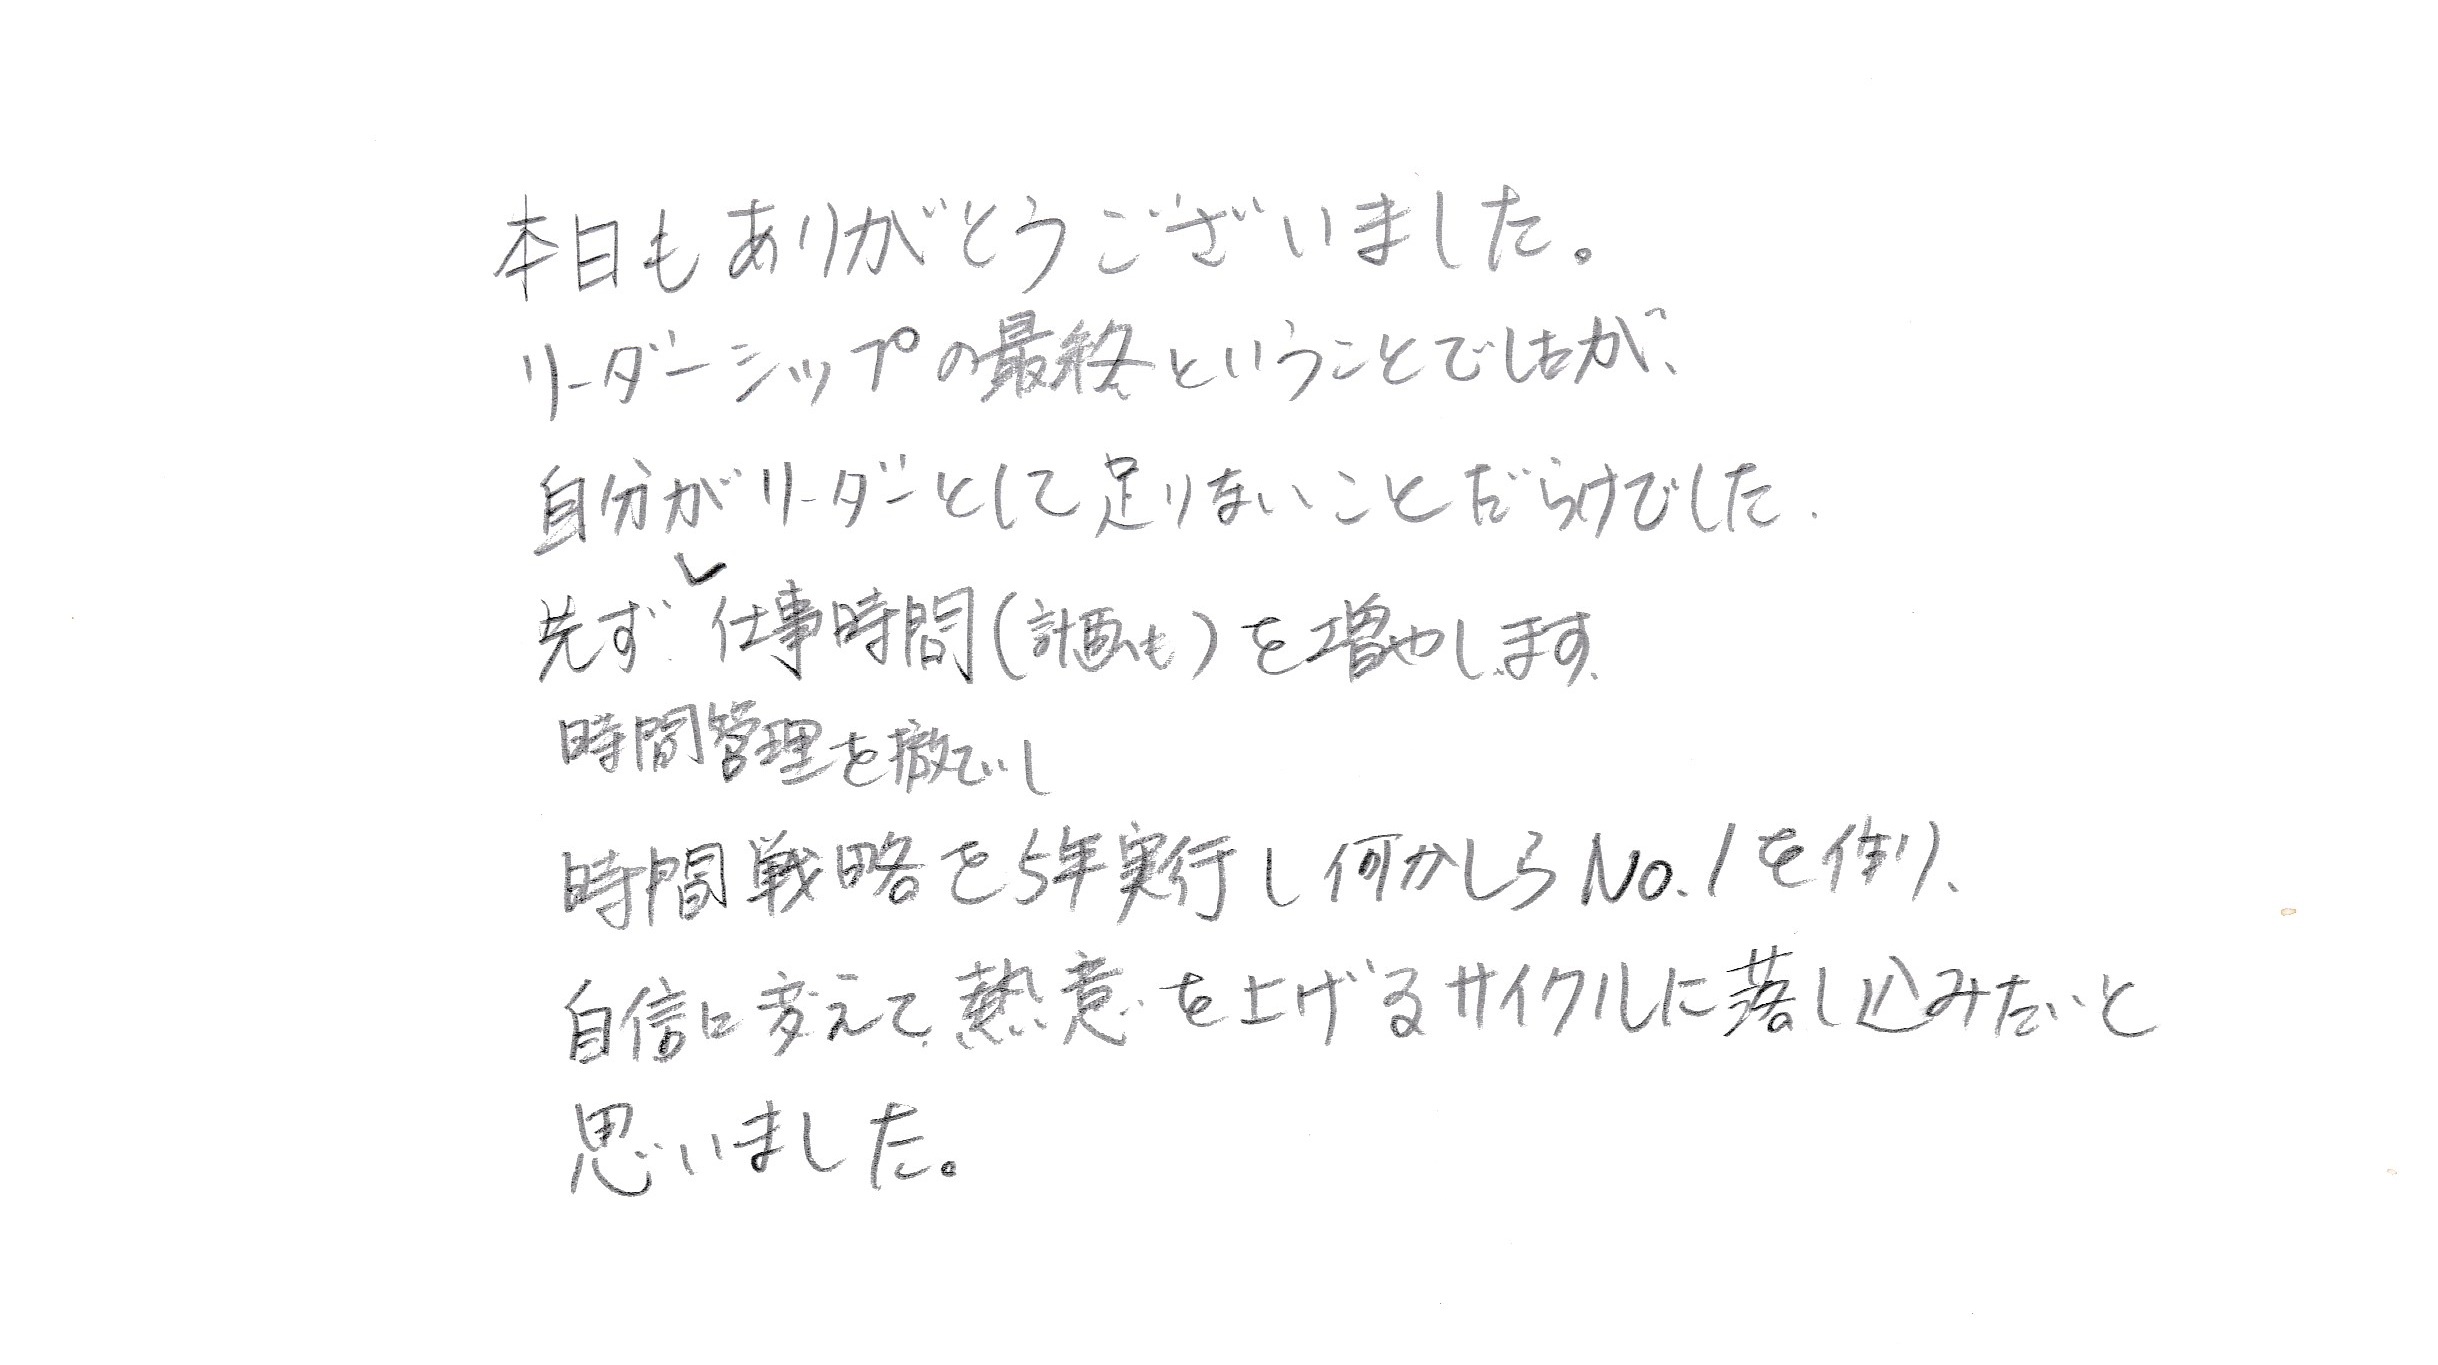 本日もありがとうございました。
リーダーシップの最終ということでしたが、
自分がリーダーとして足りないことだらけでした.
先ず 仕事時間(計画も)を増やします.
時間管理を徹ていし
時間戦略を5年実行し何かしらNo.1を作り、
自信に変えて熱意を上げるサイクルに落し込みたいと
思いました。